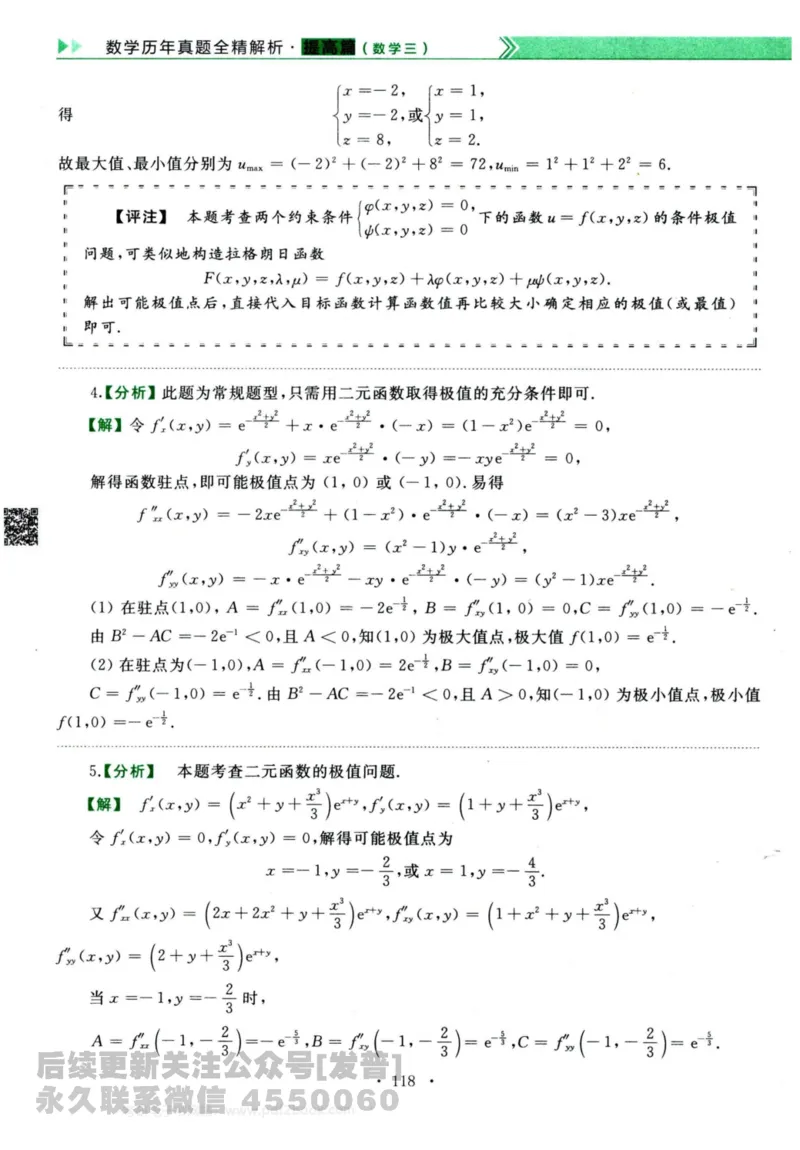 数学历年真题全精解析·提高篇（数学三）
得 { x = −2, y = −2, z = 8, 或 { x = 1, y = 1, z = 2.
故最大值、最小值分别为 u_max = (−2)² + (−2)² + 8² = 72, u_min = 1² + 1² + 2² = 6.
【评注】 本题考查两个约束条件 { φ(x,y,z) = 0, ψ(x,y,z) = 0 下的函数 u = f(x,y,z) 的条件极值
问题,可类似地构造拉格朗日函数
F(x,y,z,λ,μ) = f(x,y,z) + λφ(x,y,z) + μψ(x,y,z).
解出可能极值点后,直接代入目标函数计算函数值再比较大小确定相应的极值(或最值)
即可.
4.【分析】此题为常规题型,只需用二元函数取得极值的充分条件即可.
【解】令 f′_x(x,y) = e^{−(x²+y²)/2} + x·e^{−(x²+y²)/2}·(−x) = (1−x²)e^{−(x²+y²)/2} = 0,
f′_y(x,y) = xe^{−(x²+y²)/2}·(−y) = −xye^{−(x²+y²)/2} = 0,
解得函数驻点,即可能极值点为 (1, 0) 或 (−1, 0). 易得
f″_xx(x,y) = −2xe^{−(x²+y²)/2} + (1−x²)·e^{−(x²+y²)/2}·(−x) = (x²−3)xe^{−(x²+y²)/2},
f″_xy(x,y) = (x²−1)y·e^{−(x²+y²)/2},
f″_yy(x,y) = −x·e^{−(x²+y²)/2} − xy·e^{−(x²+y²)/2}·(−y) = (y²−1)xe^{−(x²+y²)/2}.
(1) 在驻点(1,0), A = f″_xx(1,0) = −2e^{−1/2}, B = f″_xy(1, 0) = 0, C = f″_yy(1,0) = −e^{−1/2}.
由 B² − AC = −2e^{−1} < 0,且 A < 0,知(1,0) 为极大值点,极大值 f(1,0) = e^{−1/2}.
(2) 在驻点为(−1,0), A = f″_xx(−1,0) = 2e^{−1/2}, B = f″_xy(−1,0) = 0,
C = f″_yy(−1,0) = e^{−1/2}. 由 B² − AC = −2e^{−1} < 0,且 A > 0,知(−1,0) 为极小值点,极小值
f(1,0) = −e^{−1/2}.
5.【分析】 本题考查二元函数的极值问题.
【解】 f′_x(x,y) = (x² + y + x³/3)e^{x+y}, f′_y(x,y) = (1 + y + x³/3)e^{x+y},
令 f′_x(x,y) = 0, f′_y(x,y) = 0,解得可能极值点为
x = −1, y = −2/3,或 x = 1, y = −4/3.
又 f″_xx(x,y) = (2x + 2x² + y + x³/3)e^{x+y}, f″_xy(x,y) = (1 + x² + y + x³/3)e^{x+y},
f″_yy(x,y) = (2 + y + x³/3)e^{x+y},
当 x = −1, y = −2/3 时,
A = f″_xx(−1, −2/3) = −e^{−5/3}, B = f″_xy(−1, −2/3) = e^{−5/3}, C = f″_yy(−1, −2/3) = e^{−5/3}.
后续更新关注公众号[发普]
· 118 ·
永久联系微信 4550060